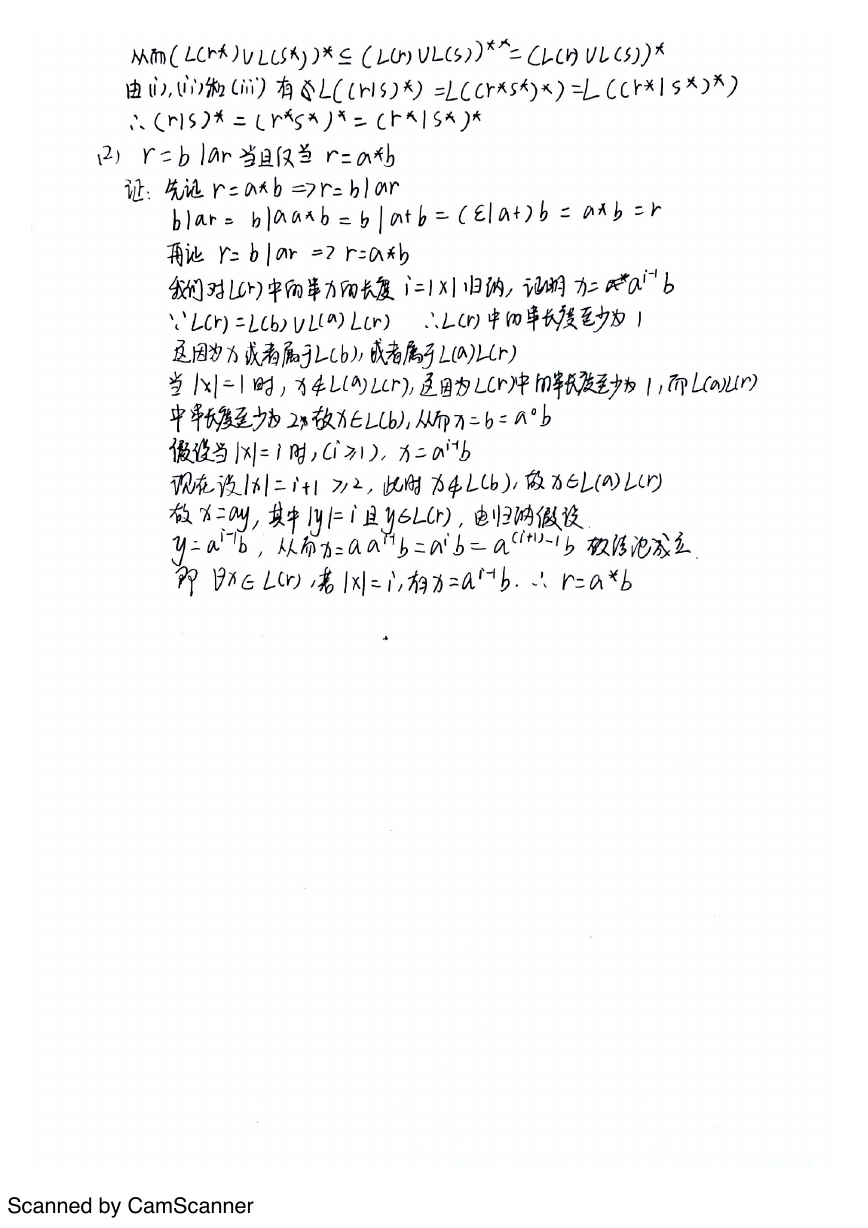 从而(L(r*)∪L(s*))*⊆(L(r)∪L(s))**=(L(r)∪L(s))*
由(i),(ii)和(iii)有L((r|s)*)=L((r*s*)*)=L((r*|s*)*)
∴(r|s)*=(r*s*)*=(r*|s*)*
(2) r=b|ar当且仅当 r=a*b
证: 先证 r=a*b=>r=b|ar
b|ar= b|aa*b=b|a+b=(ε|a+)b=a*b=r
再证 r=b|ar => r=a*b
我们对L(r)中的串x的长度 i=|x|归纳, 证明 x=aⁱ⁻¹b
∵L(r)=L(b)∪L(a)L(r) ∴L(r)中的串长度至少为1
这因为x或者属于L(b), 或者属于L(a)L(r)
当|x|=1时, x∉L(a)L(r), 这因为L(r)中的串长度至少为1, 而L(a)L(r)
中串长度至少为2 故x∈L(b), 从而x=b=a⁰b
假设当|x|=i时, (i≥1), x=aⁱ⁻¹b
现在设|x|=i+1≥2, 此时x∉L(b), 故x∈L(a)L(r)
故x=ay, 其中|y|=i且y∈L(r), 由归纳假设
y=aⁱ⁻¹b, 从而x=aaⁱ⁻¹b=aⁱb=a⁽ⁱ⁺¹⁾⁻¹b 故结论成立.
即 ∀x∈L(r), 若|x|=i, 有x=aⁱ⁻¹b. ∴ r=a*b
Scanned by CamScanner